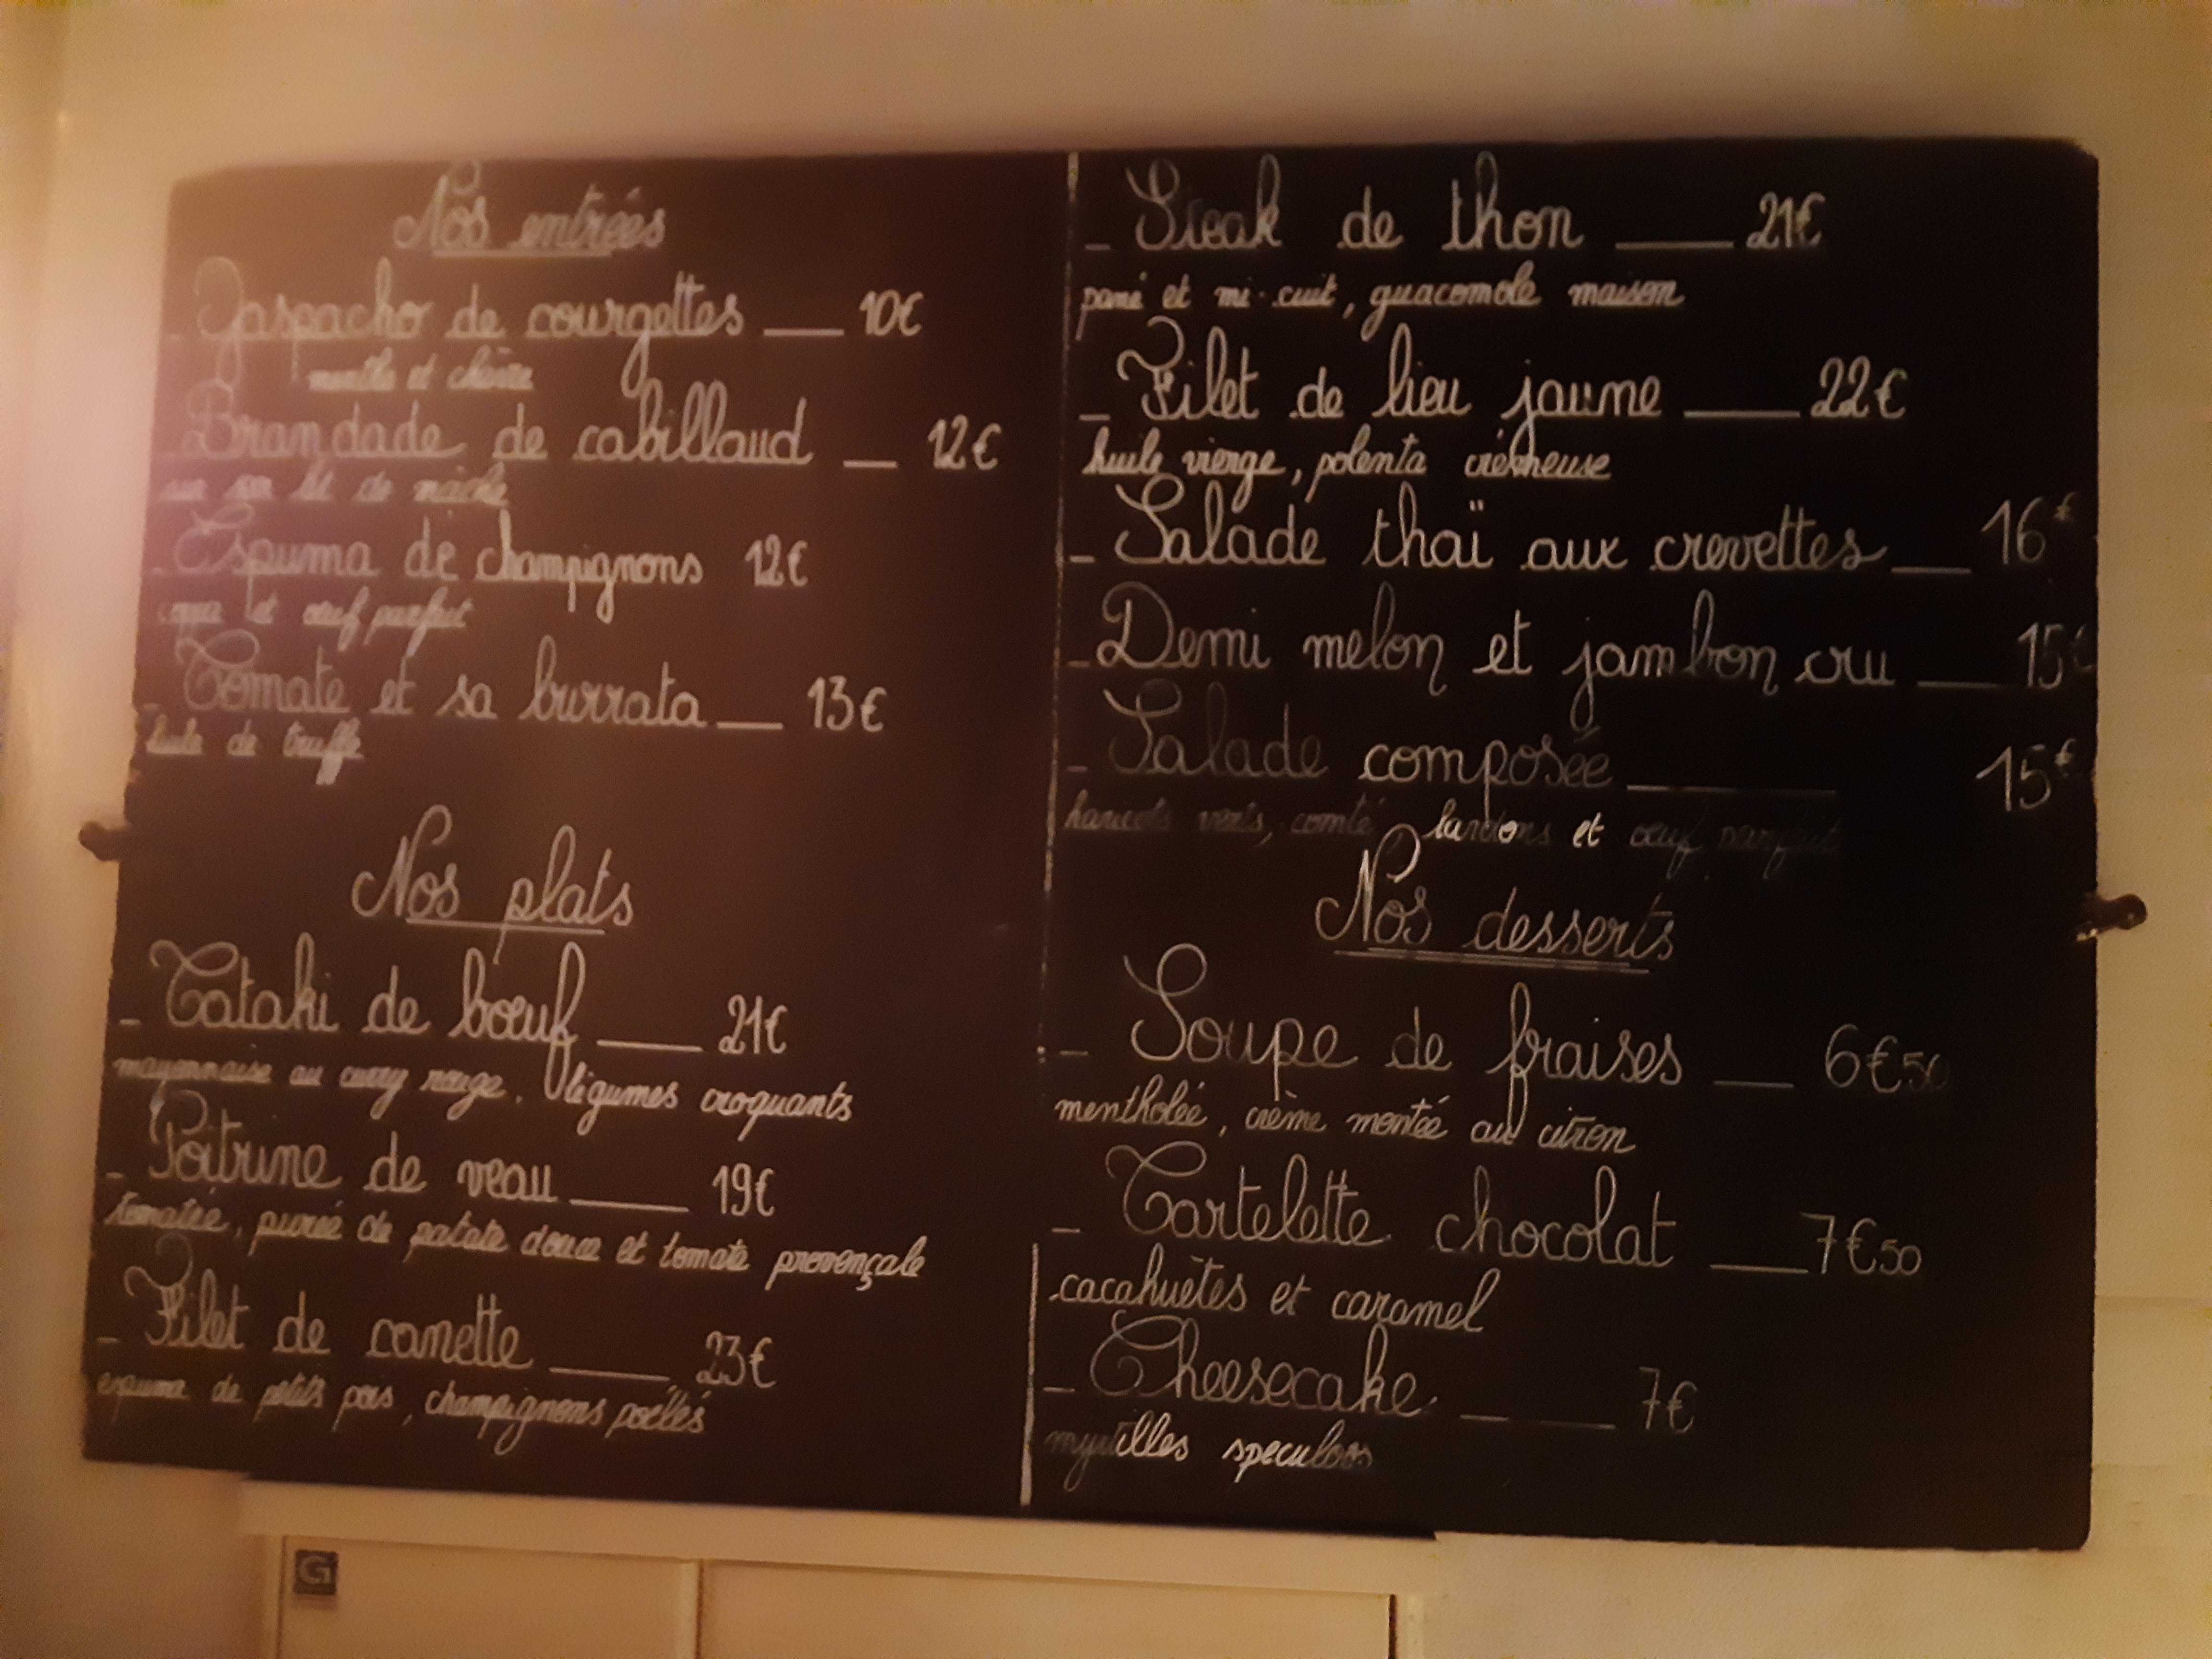 Nos entrées
_ Gaspacho de courgettes __ 10€
menthe et chèvre
_ Brandade de cabillaud _ 12€
sur son lit de mâche
_ Espuma de champignons 12€
et œuf parfait
_ Tomate et sa burrata __ 13€
huile de truffe
Nos plats
_ Tataki de bœuf ___ 21€
mayonnaise au curry rouge, légumes croquants
_ Poitrine de veau ___ 19€
tomatée, purée de patate douce et tomate provençale
_ Filet de canette ___ 23€
espuma de petits pois, champignons poêlés
_ Steak de thon ___ 21€
pané et mi-cuit, guacamole maison
_ Filet de lieu jaune ___ 22€
huile vierge, polenta crémeuse
_ Salade thaï aux crevettes __ 16€
_ Demi melon et jambon cru __ 15€
_ Salade composée ____ 15€
haricots verts, comté lardons et œuf parfait
Nos desserts
_ Soupe de fraises __ 6€50
mentholée, crème montée au citron
_ Tartelette chocolat __ 7€50
cacahuètes et caramel
_ Cheesecake ___ 7€
myrtilles speculoos
G